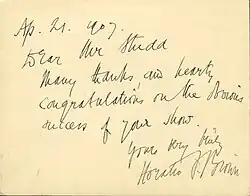 Ap. 21. 1907.
Dear Mr Studd
Many thanks, and hearty
congratulations on the
success of your show.
Yours very truly
Horatio F. Brown